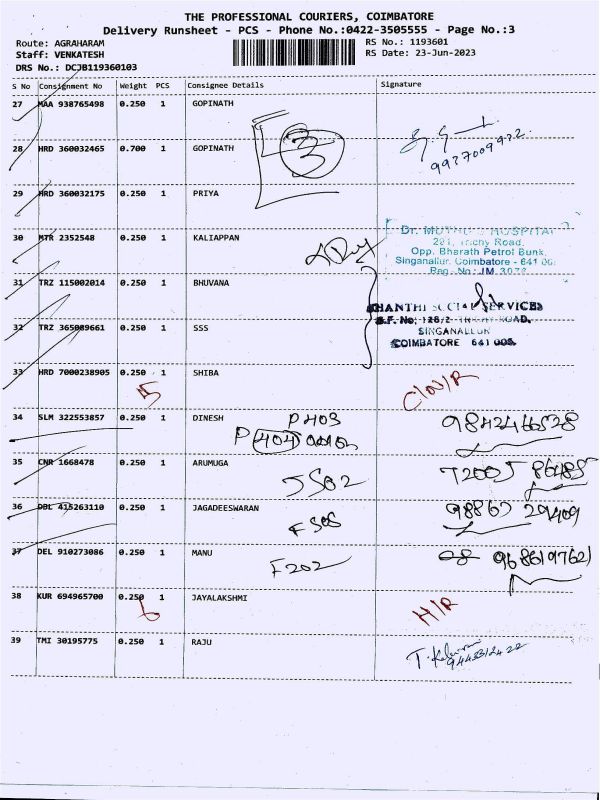 THE PROFESSIONAL COURIERS, COIMBATORE
Delivery Runsheet - PCS - Phone No.:0422-3505555 - Page No.:3
Route: AGRAHARAM RS No.: 1193601
Staff: VENKATESH RS Date: 23-Jun-2023
DRS No.: DCJB119360103
S No Consignment No Weight PCS Consignee Details Signature
27 MAA 938765498 0.250 1 GOPINATH
3
28 HRD 360032465 0.700 1 GOPINATH
9927009922
29 HRD 360032175 0.250 1 PRIYA
30 MTR 2352548 0.250 1 KALIAPPAN
HOSPITAL
221, Trichy Road,
Opp. Bharath Petrol Bunk,
Singanallur, Coimbatore - 641 005
Reg. No: JM 3078
31 TRZ 115002014 0.250 1 BHUVANA
SHANTHI SOCIAL SERVICES
S.F. No; 128/2 TRICHY ROAD,
SINGANALLUR
COIMBATORE 641 005.
32 TRZ 365009661 0.250 1 SSS
33 HRD 7000238905 0.250 1 SHIBA
5 C/N/R
34 SLM 322553857 0.250 1 DINESH P403
P 404
35 CNR 1668478 0.250 1 ARUMUGA
J502 72005 86485
36 DBL 415263110 0.250 1 JAGADEESWARAN
F505 98865 29409
37 DEL 910273086 0.250 1 MANU
F202 9688619762
38 KUR 694965700 0.250 1 JAYALAKSHMI
6 H/R
39 TMI 30195775 0.250 1 RAJU